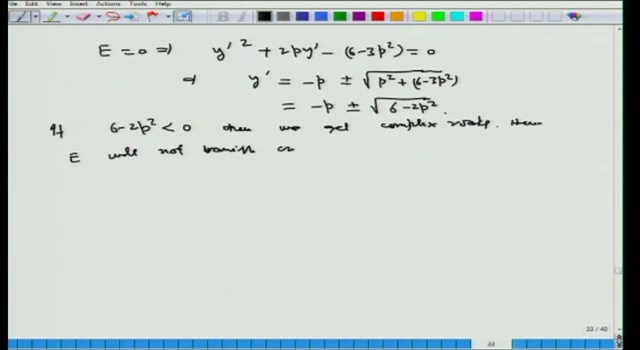 Edit View Insert Actions Tools Help
E = 0 ⇒ y'² + 2py' - (6-3p²) = 0
⇒ y' = -p ± √(p² + (6-3p²))
= -p ± √(6-2p²).
If 6-2p² < 0 then we get complex roots. Hence
E will not vanish
33 / 40
33